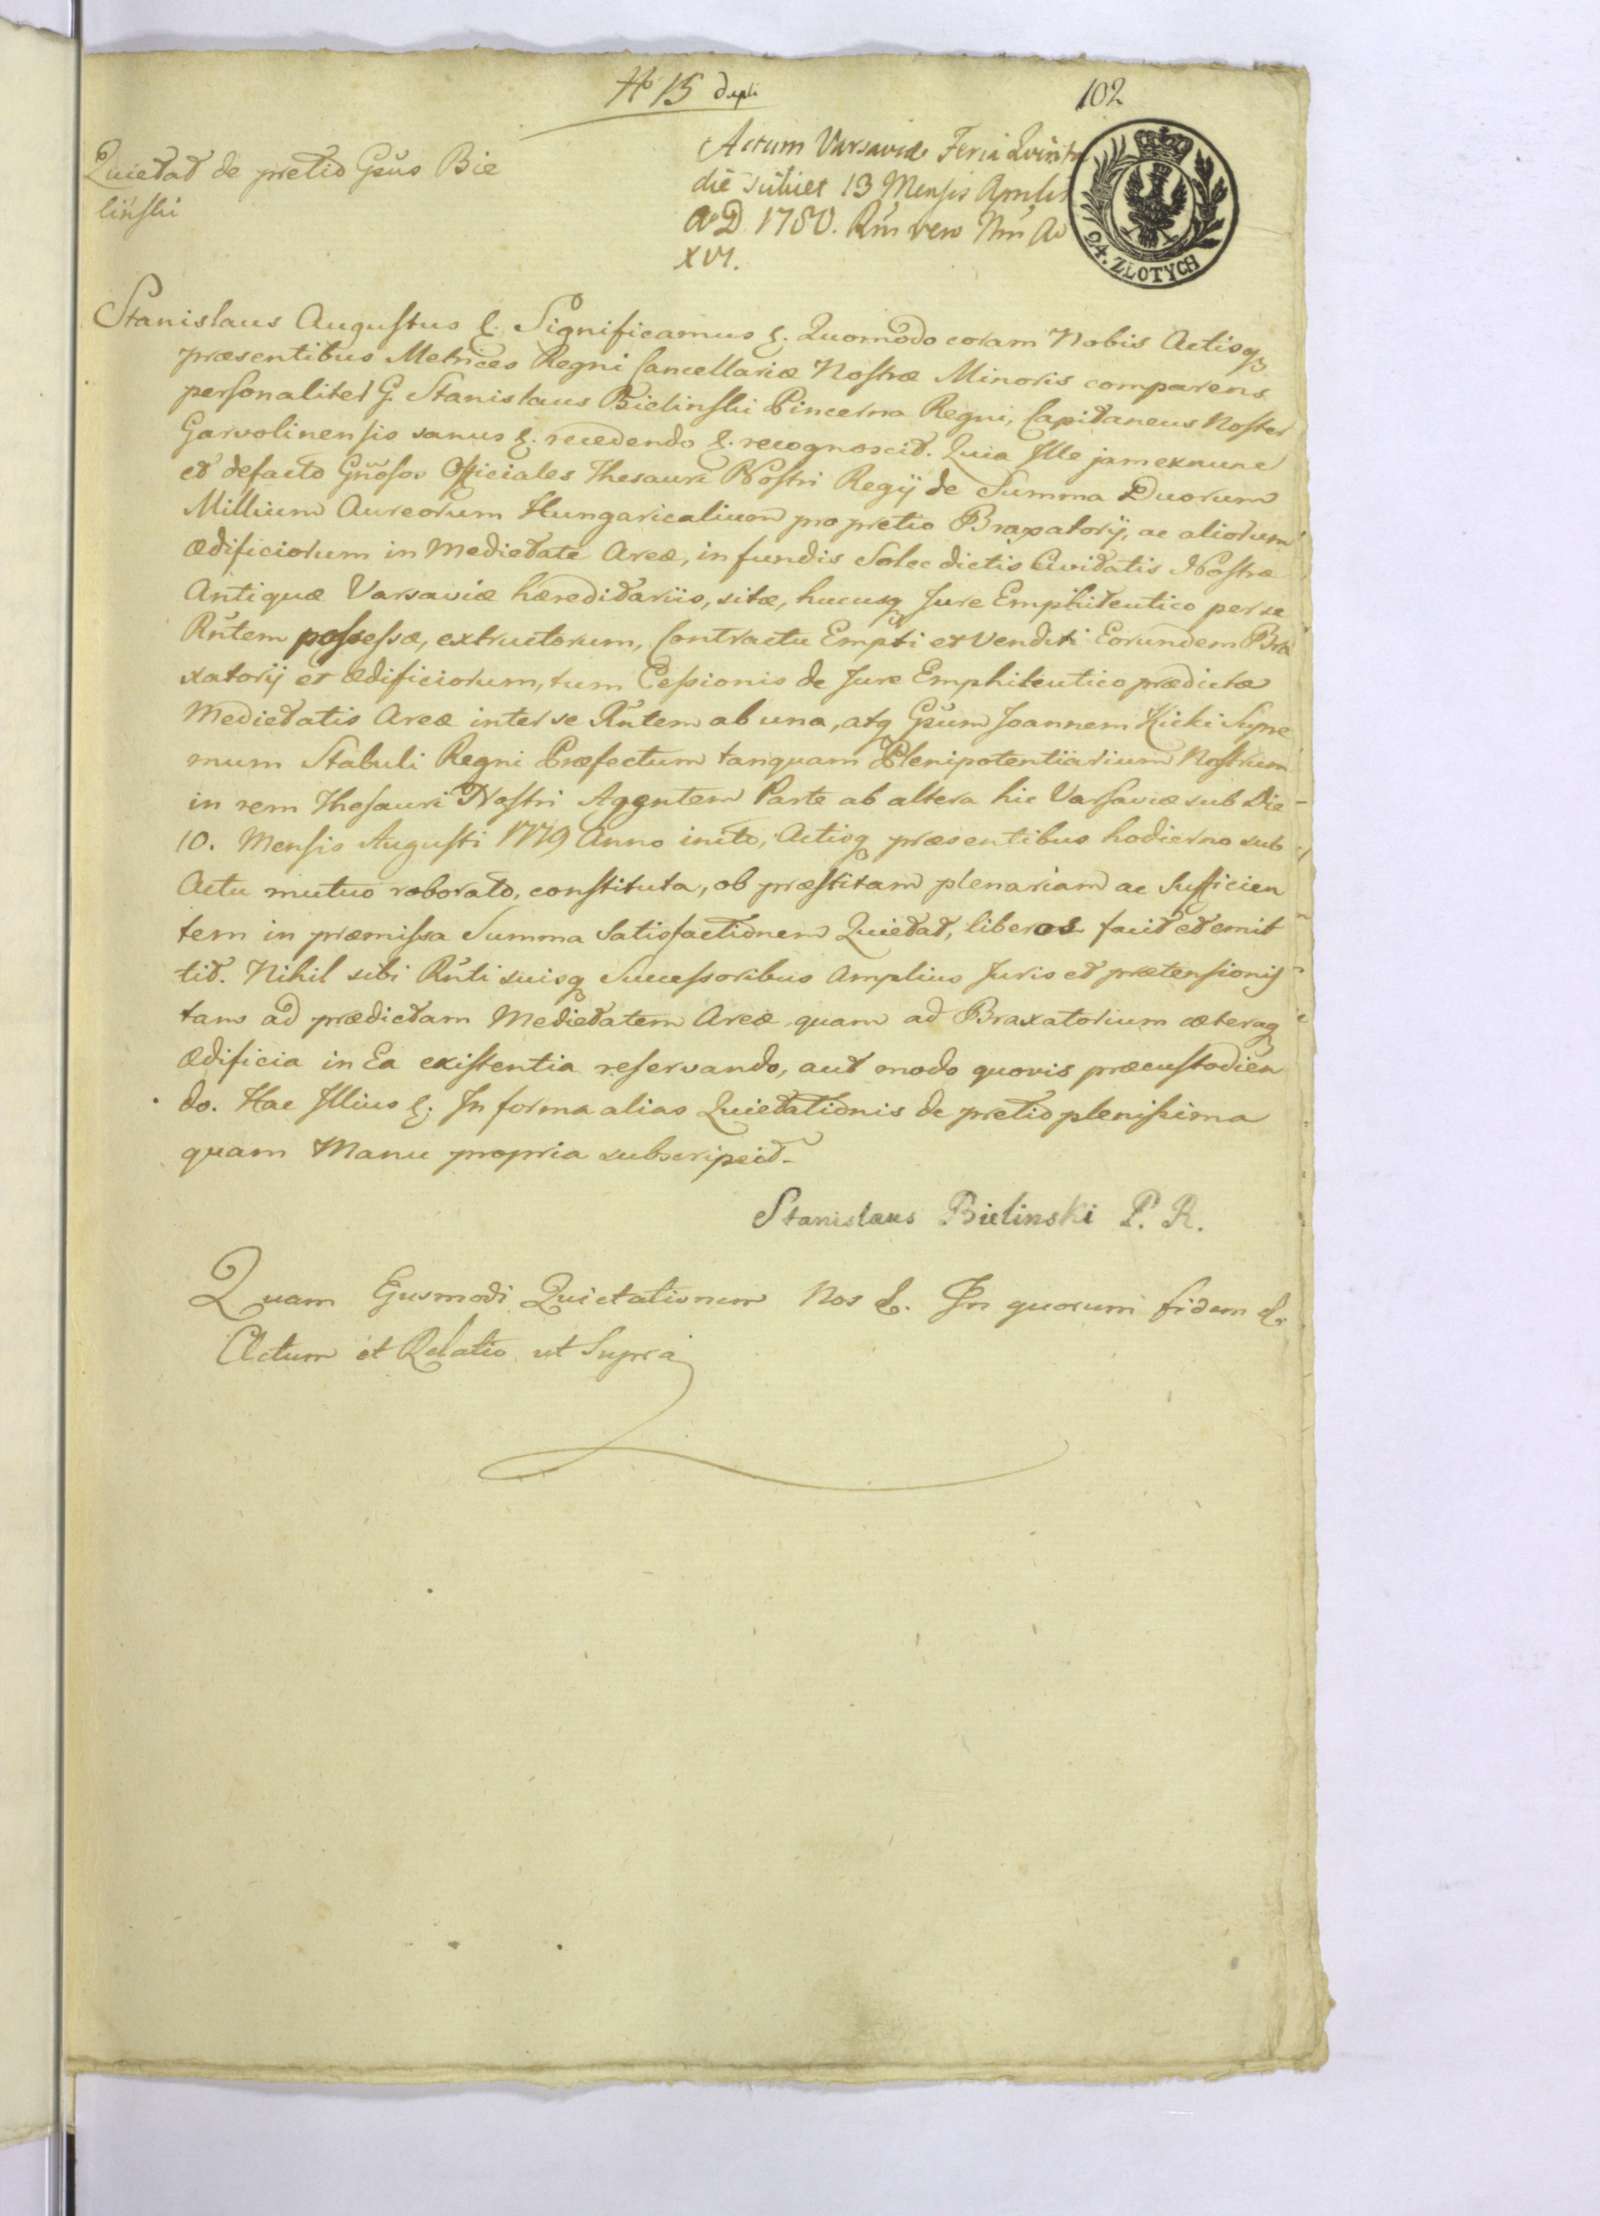 No 15 dupli
102
Quietat de pretio Gsus Bie
liński
Actum Varsaviæ Feria Quinta
die scilicet 13 Mensis Aprilis
Ao D 1780. Rni vero Nri Ao
XVI.
24. ZŁOTYCH
Stanislaus Augustus &. Significamus &. Quomodo coram Nobis Actisq
præsentibus Metrices Regni Cancellariæ Nostræ Minoris comparens
personaliter G. Stanislaus Bielinski Pincerna Regni, Capitaneus Noster
Garvolinensis sanus &. recedendo &. recognoscit. Quia Ille jam exnunc
et defacto Gnosos Officiales Thesauri Nostri Regij de Summa Duorum
Millium Aureorum Hungaricalium pro pretio Braxatorij, ac aliorum
Ædificiorum in Medietate Areæ, in fundis Solec dictis Civitatis Nostræ
Antiquæ Varsaviæ hæreditariis, sitæ, hucusq Jure Emphiteutico per se
Rntem possessæ, extructorum, Contractu Empti et Venditi Eorundem Bra
xatorij et Ædificiorum, tum Cessionis de Jure Emphiteutico prædictæ
Medietatis Areæ inter se Rntem ab una, atq Gsum Joannem Kicki Supre
mum Stabuli Regni Præfectum tanquam Plenipotentiarium Nostrum
in rem Thesauri Nostri Agentem Parte ab altera hic Varsaviæ sub Die
10. Mensis Augusti 1779 Anno inito, Actisq præsentibus hodierno sub
Actu mutuo roborato, constituta, ob præstitam plenariam ac Sufficien
tem in præmissa Summa Satisfactionem Quietat, liberos facit et emit
tit. Nihil sibi Rnti suisq Successoribus Amplius Juris et prætensionis
tam ad prædictam Medietatem Areæ quam ad Braxatorium cæteraq
Ædificia in Ea existentia reservando, aut modo quovis præcustodien
do. Hac Illius &. In forma alias Quietationis de pretio plenissima
quam Manu propria subscripsit.
Stanislaus Bielinski P. R.
Quam Ejusmodi Quietationem Nos &. In quorum fidem &.
Actum et Relatio ut Supra